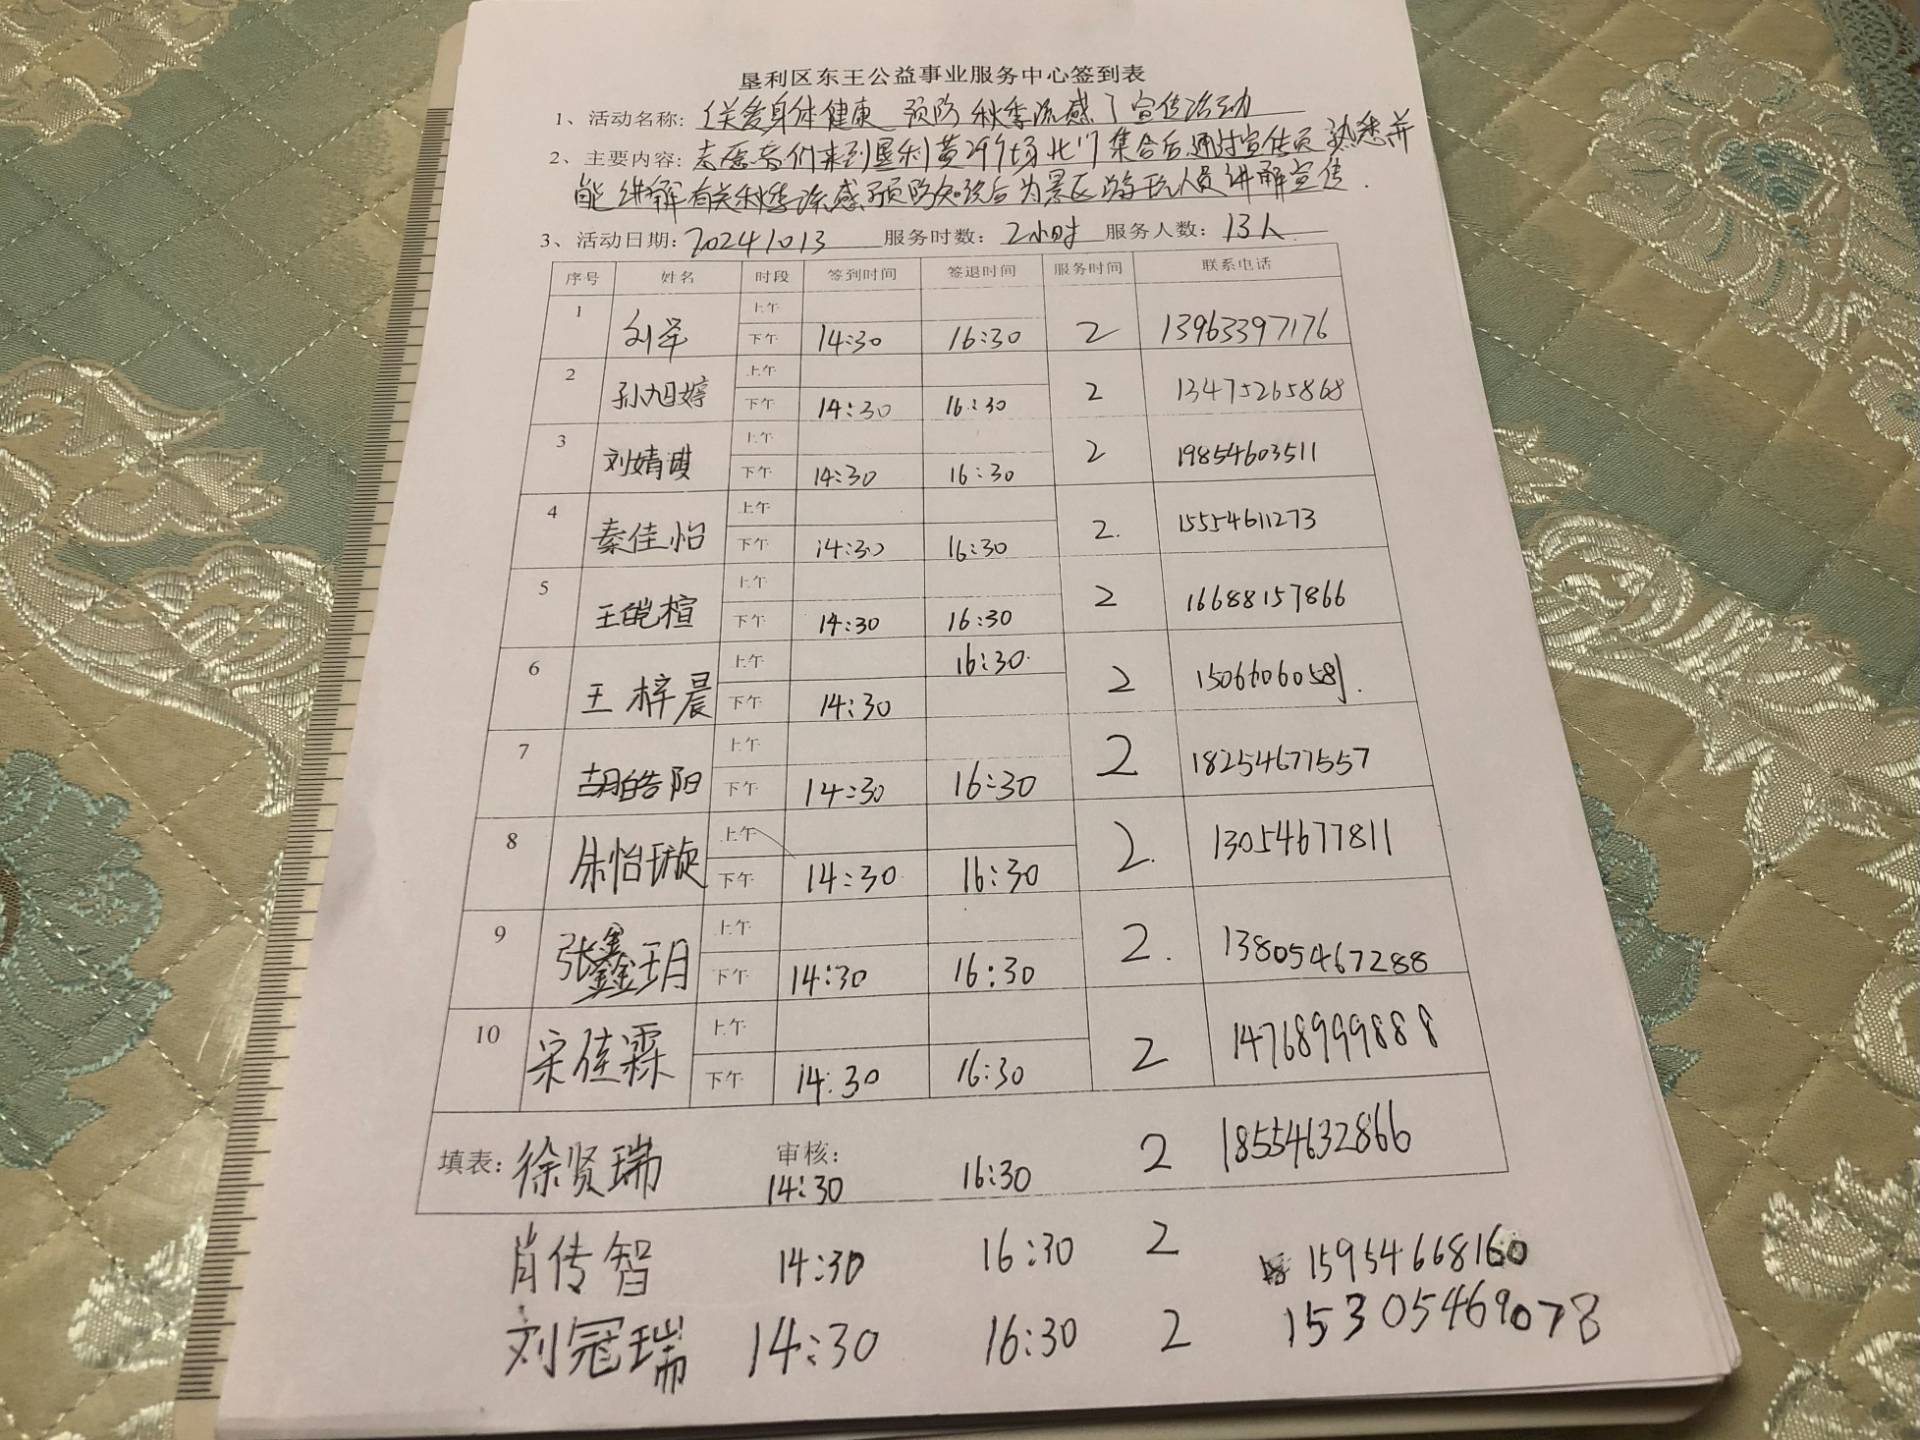 垦利区东王公益事业服务中心签到表
1、活动名称: 《关爱身体健康 预防秋季流感》宣传活动
2、主要内容: 志愿者们来到垦利黄河广场北门集合后通过宣传页熟悉并
能讲解有关秋季流感预防知识后为景区游玩人员讲解宣传.
3、活动日期: 20241013 服务时数: 2小时 服务人数: 13人
序号 姓名 时段 签到时间 签退时间 服务时间 联系电话
1 刘泽 上午
下午 14:30 16:30 2 13963397176
2 孙旭婷 上午
下午 14:30 16:30 2 13475265868
3 刘婧琪 上午
下午 14:30 16:30 2 19854603511
4 秦佳怡 上午
下午 14:30 16:30 2. 15554611273
5 王皑楦 上午
下午 14:30 16:30 2 16688157866
6 王梓晨 上午 16:30
下午 14:30 2 15066060581.
7 胡皓阳 上午
下午 14:30 16:30 2 18254677557
8 朱怡璇 上午
下午 14:30 16:30 2. 13054677811
9 张鑫玥 上午
下午 14:30 16:30 2. 13805467288
10 宋佳霖 上午
下午 14:30 16:30 2 14768999888
填表: 徐贤瑞 审核: 14:30 16:30 2 18554632866
肖传智 14:30 16:30 2 15954668160
刘冠瑞 14:30 16:30 2 15305469078